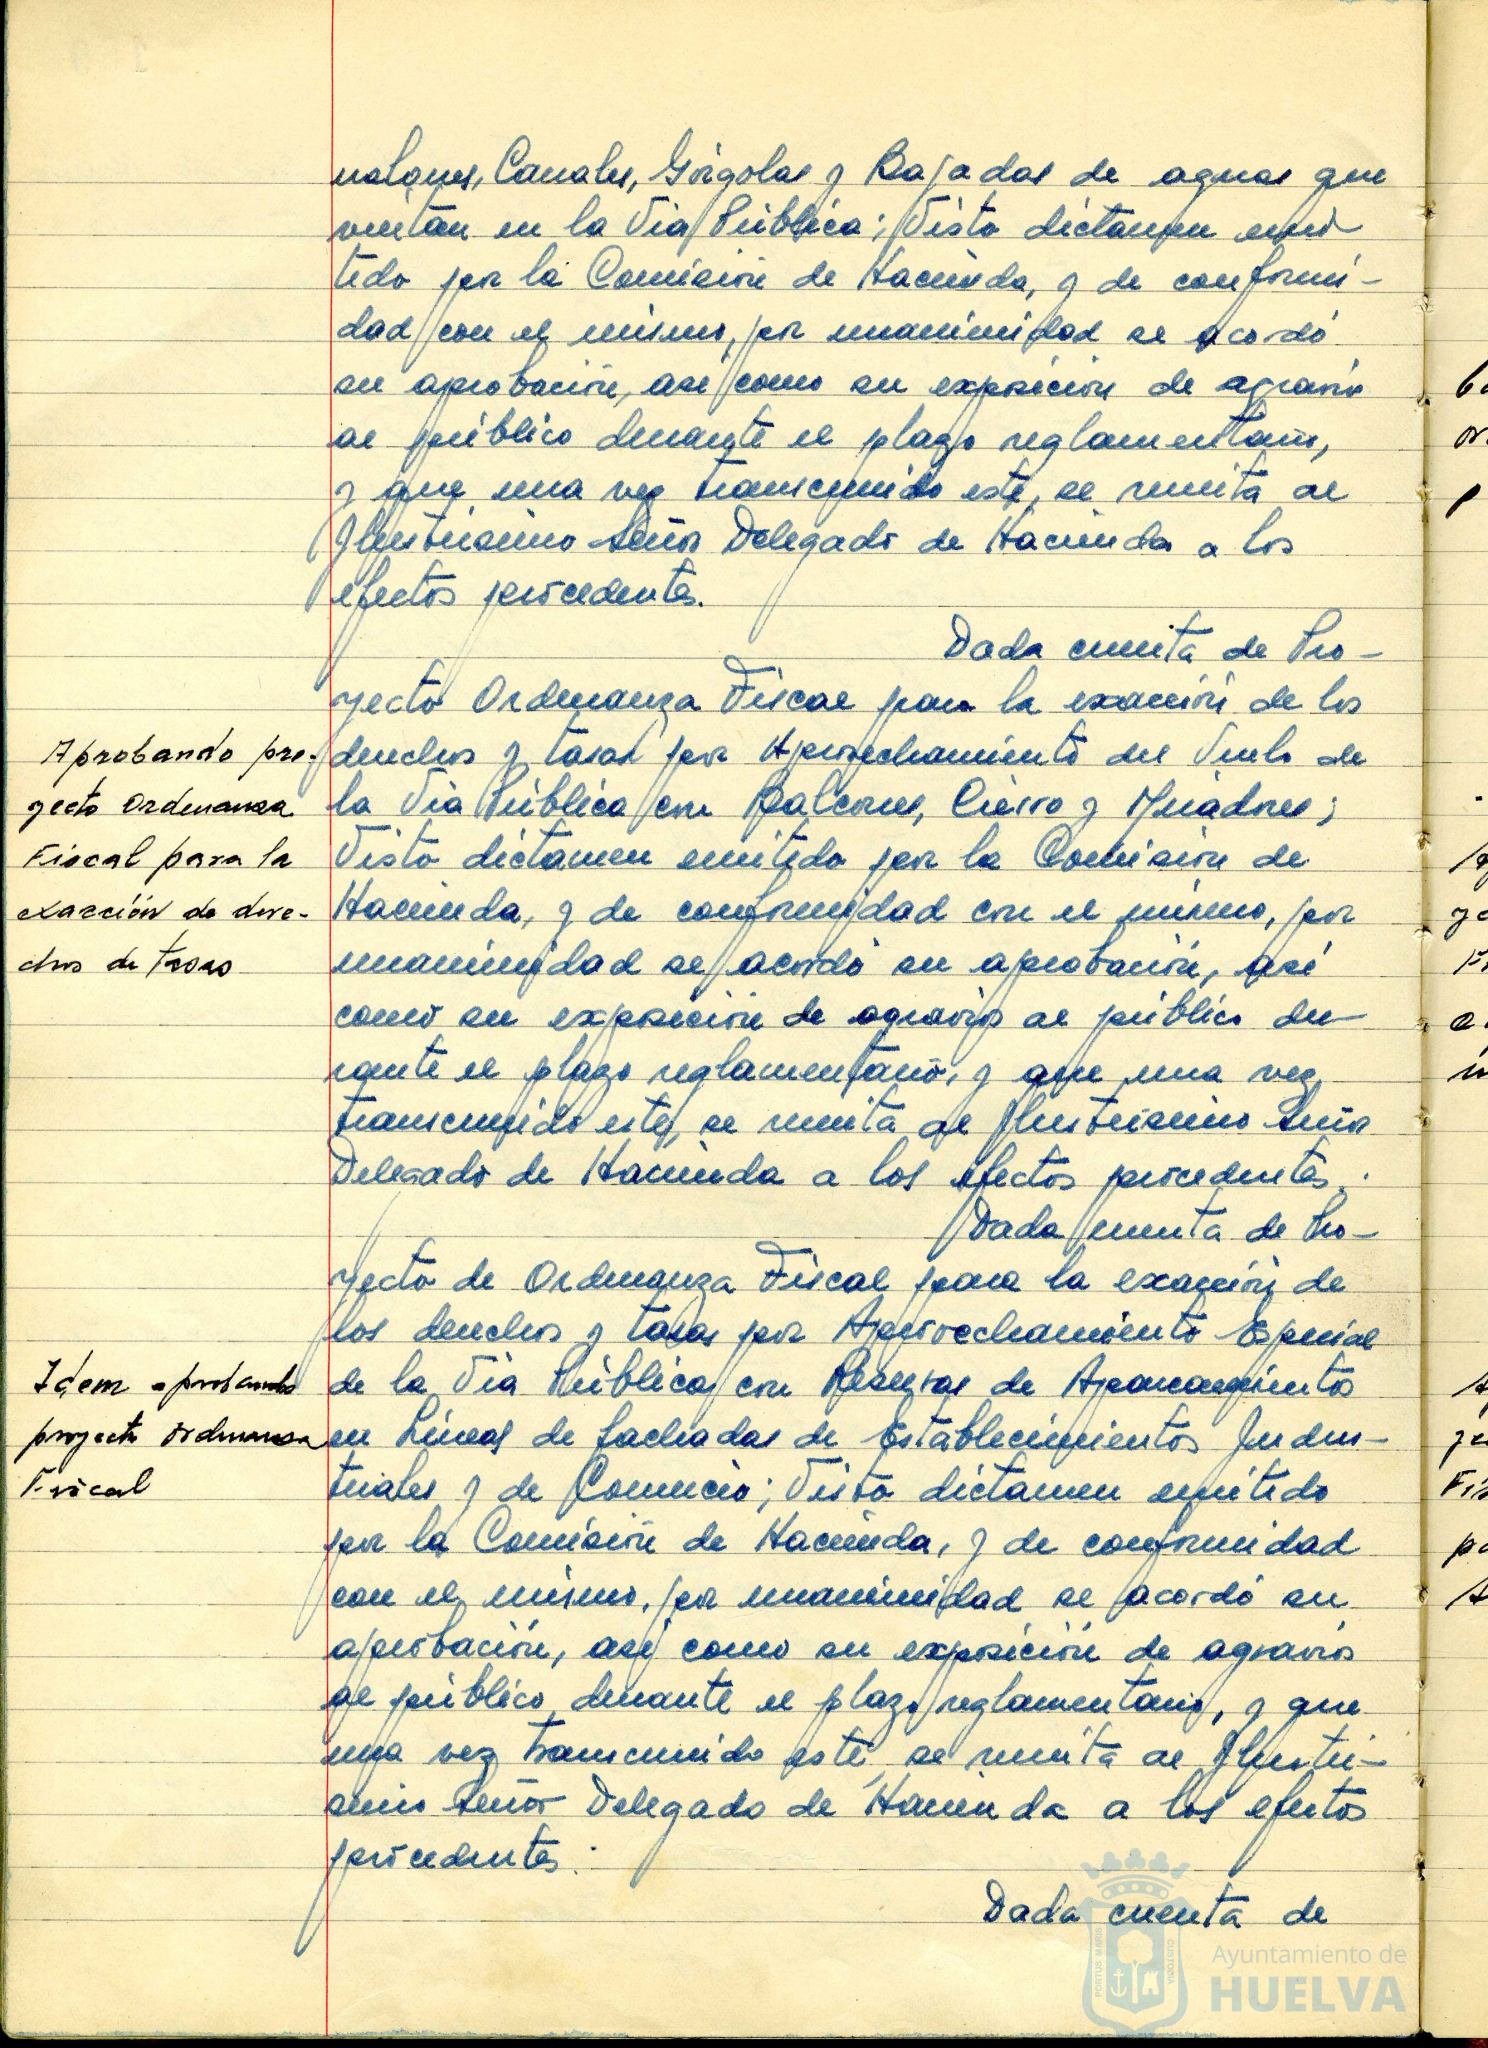 nalones, Canales, Górgolas y Bajadas de aguas que
viertan en la Via Pública; Visto dictamen emi-
tido por la Comisión de Hacienda, y de conformi-
dad con el mismo, por unanimidad se acordó
su aprobación, asi como su exposición de agravios
al público durante el plazo reglamentario,
y que una vez transcurrido este, se remita al
Ilustrisimo Señor Delegado de Hacienda a los
efectos procedentes.
Dada cuenta de Pro-
yecto Ordenanza Fiscal para la exacción de los
derechos y tasas por Aprovechamiento del Vuelo de
la Via Pública con Balcones, Cierro y Miradores;
Visto dictamen emitido por la Comisión de
Hacienda, y de conformidad con el mismo, por
unanimidad se acordó su aprobación, asi
como su exposición de agravios al público du-
rante el plazo reglamentario, y que una vez
transcurrido este, se remita al Ilustrisimo Señor
Delegado de Hacienda a los efectos procedentes.
Dada cuenta de Pro-
yecto de Ordenanza Fiscal para la exacción de
los derechos y tasas por Aprovechamiento Especial
de la Via Pública con Reservas de Aparcamientos
en Lineas de fachadas de Establecimientos Indus-
triales y de Comercio; Visto dictamen emitido
por la Comisión de Hacienda, y de conformidad
con el mismo, por unanimidad se acordó su
aprobación, asi como su exposición de agravios
al público durante el plazo reglamentario, y que
una vez transcurrido este, se remita al Ilustri-
simo Señor Delegado de Hacienda a los efectos
procedentes.
Dada cuenta de
Aprobando pro-
yecto Ordenanza
Fiscal para la
exacción de dere-
chos de tasas
Idem aprobando
proyecto ordenanza
Fiscal
PORTUS MARIS
CUSTODIA
Ayuntamiento de
HUELVA